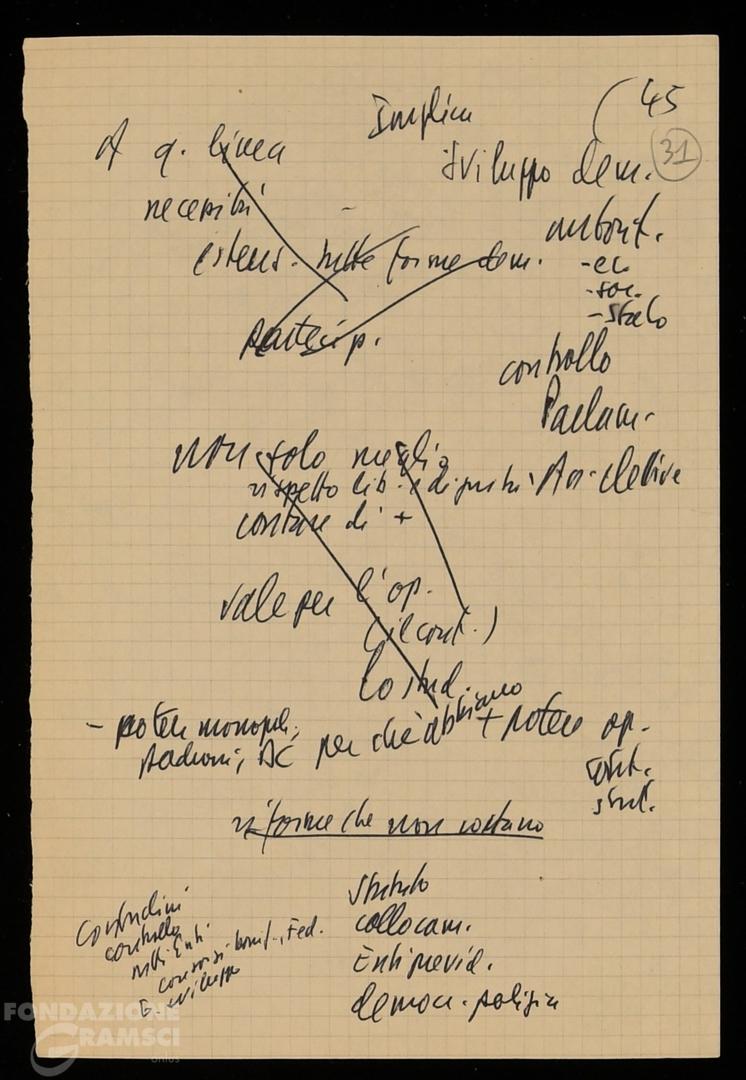 45
31
Implica
A q. linea
sviluppo dem.
necessità
autont.
estens. tutte forme dem.
- ec.
- soc.
- Stato
partecip.
controllo
Parlam.
non solo meglio
rispetto lib. e dignità
Ass. elettive
contare di +
vale per l'op.
(il cont.)
lo stud.
- potere monopoli,
padroni, DC perché abbiano + potere op.
cont.
stud.
riforme che non costano
Statuto
collocam.
Enti previd.
democr. polizia
Contadini
controllo
sugli Enti
consorzi bonif., Fed.
E. sviluppo
FONDAZIONE
GRAMSCI
onlus